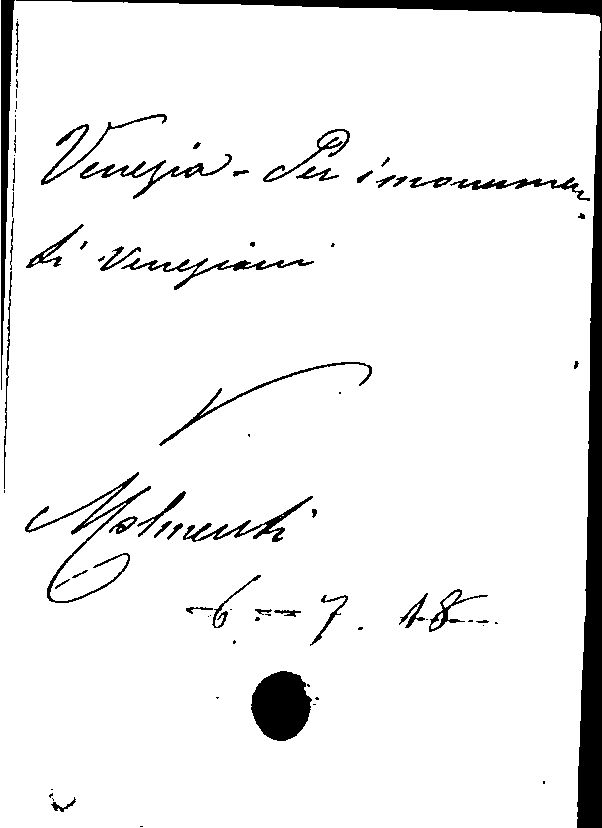 Venezia - Per i monumen-
ti veneziani
V.
Molmenti
6 - 7. 18